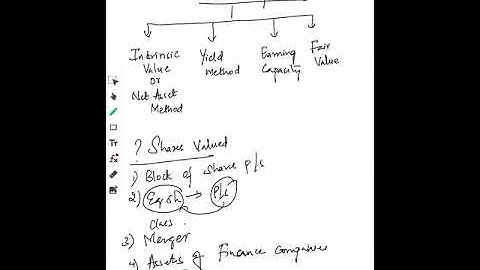 Intrinsic Value or Net Asset Method
Yield Method
Earning Capacity
Fair Value
? Shares Valued
1) Block of Shares P/s
2) Eq sh → P/s
class
3) Merger
4) Assets of Finance Companies
TT
fx